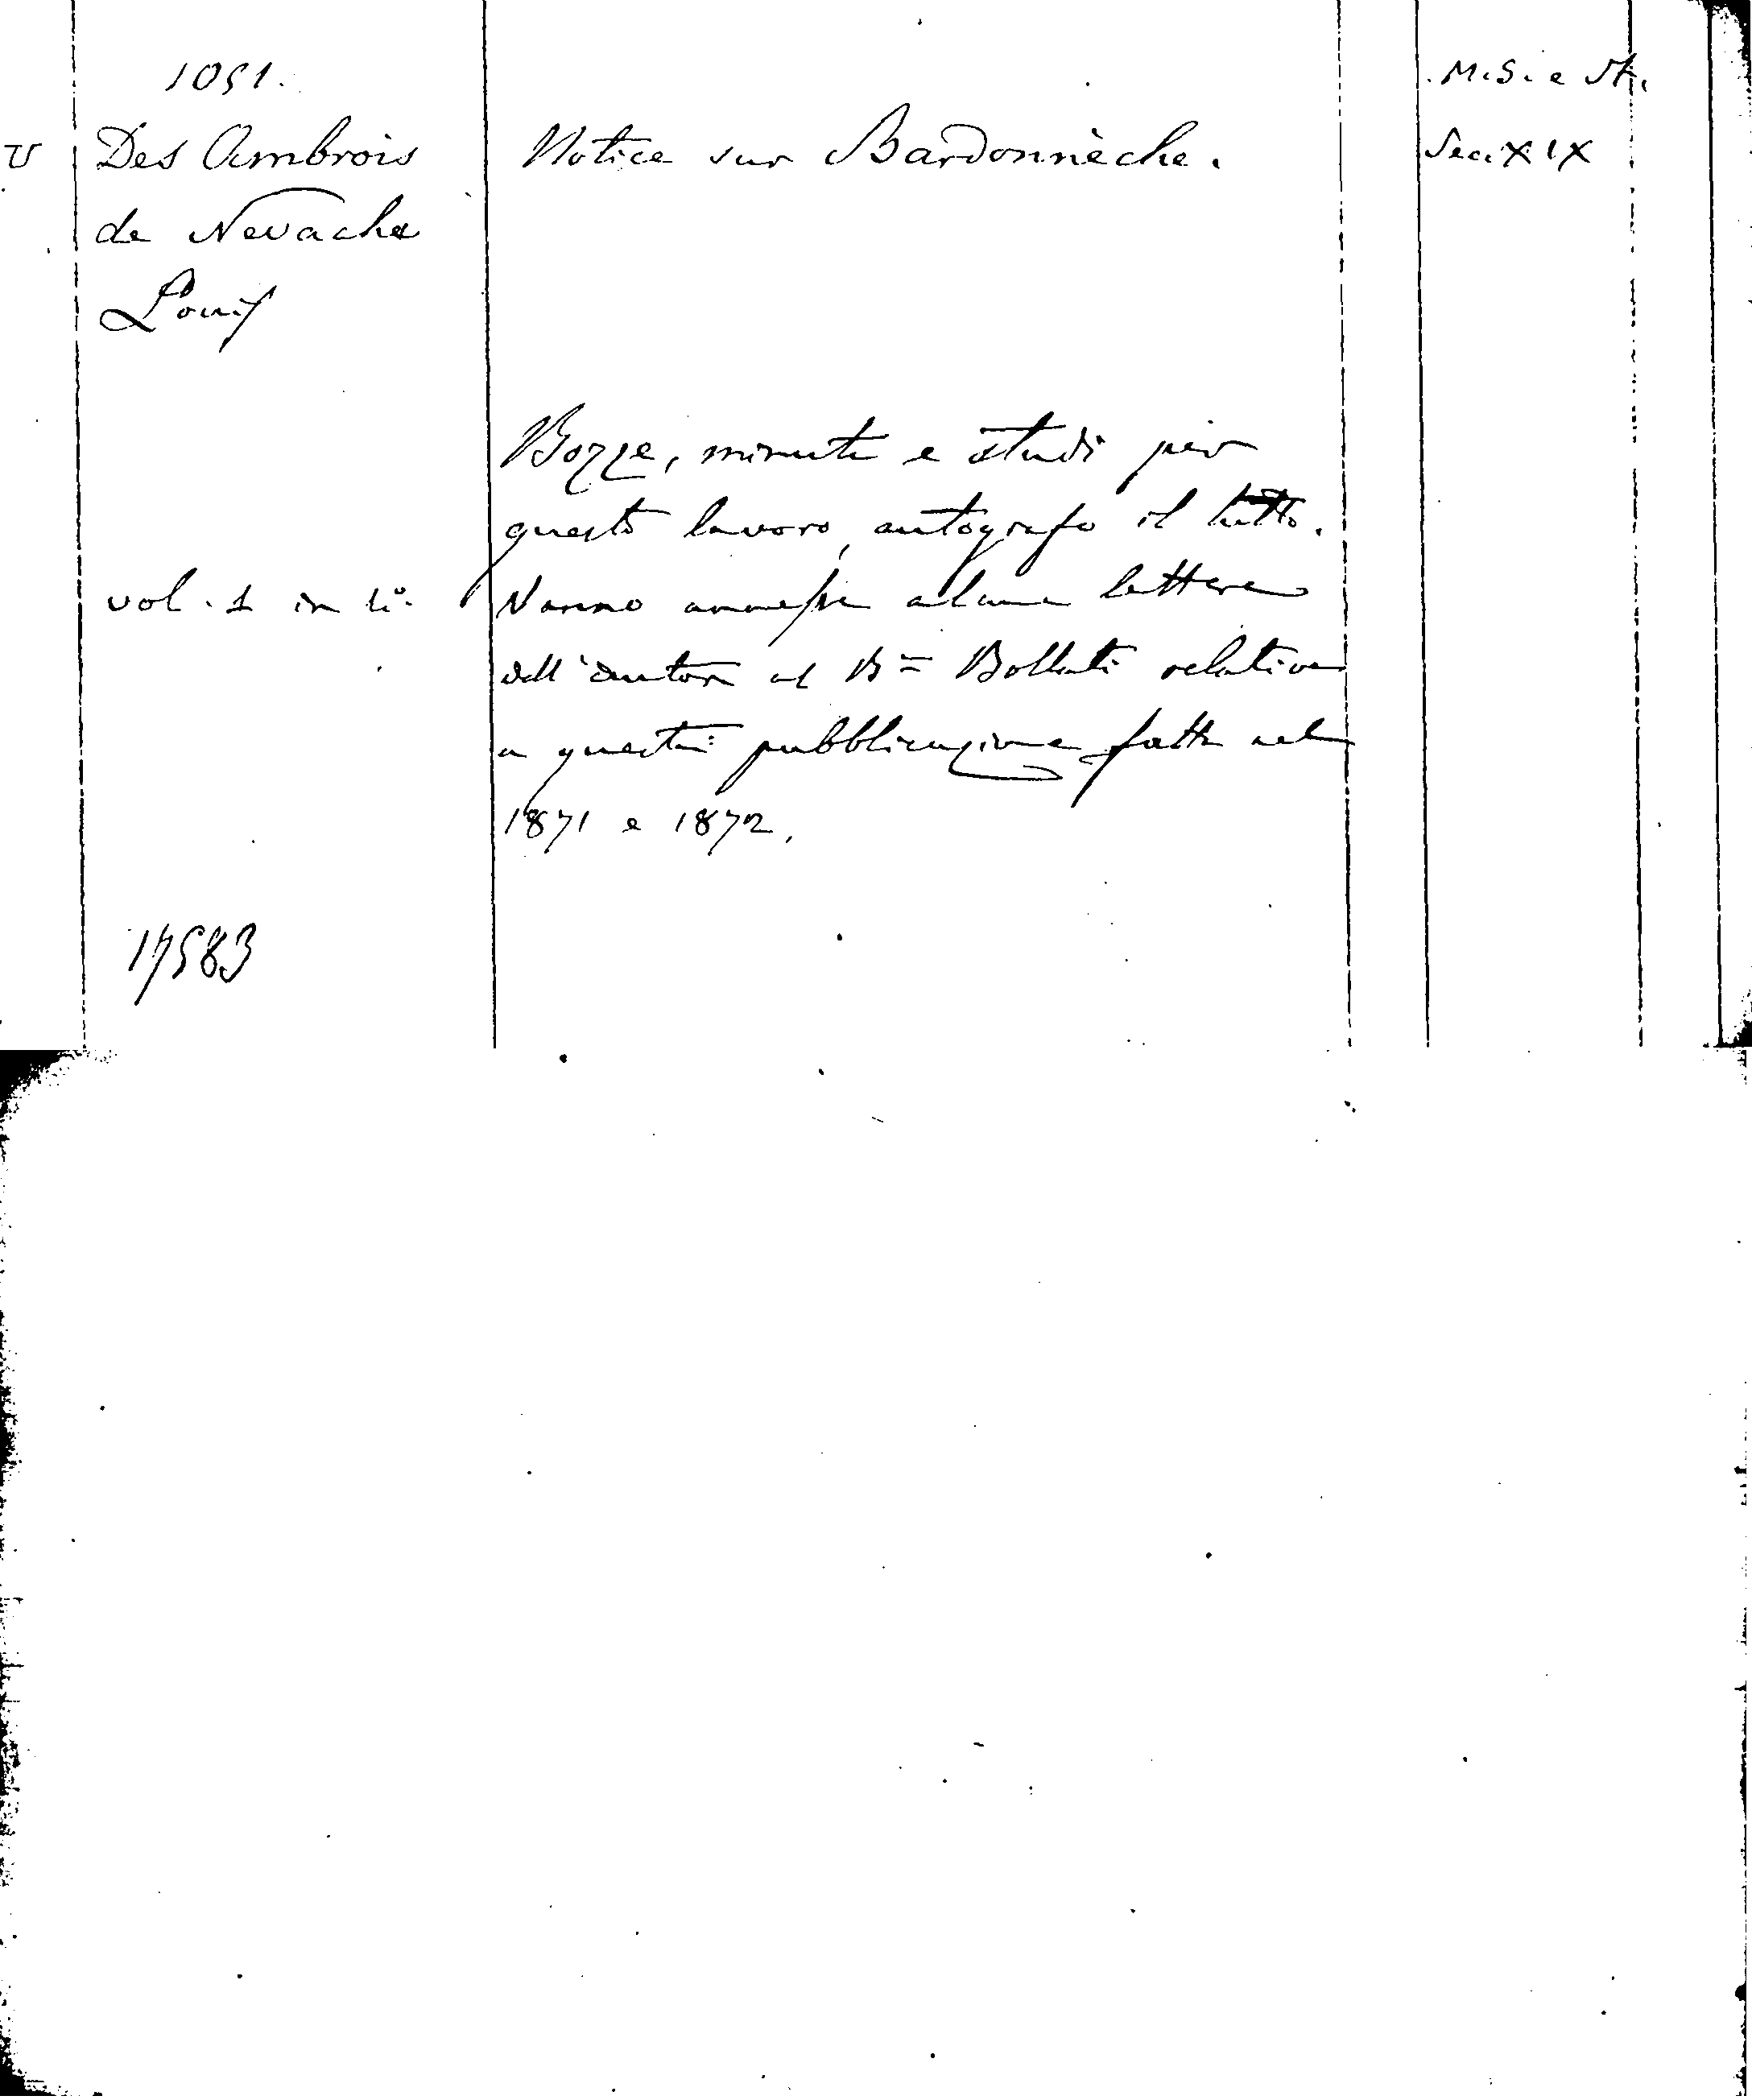 1051.
M.S. e St.
V
Des Ambrois
Notice sur Bardonnèche.
Sec. XIX
de Nevache
Louis
Bozze, minute e studi per
questo lavoro, autografo il tutto.
vol. 1 in 4°.
Vanno annesse alcune lettere
dell'autore al Bne Bollati relative
a questa pubblicazione fatta nel
1871 e 1872.
17583